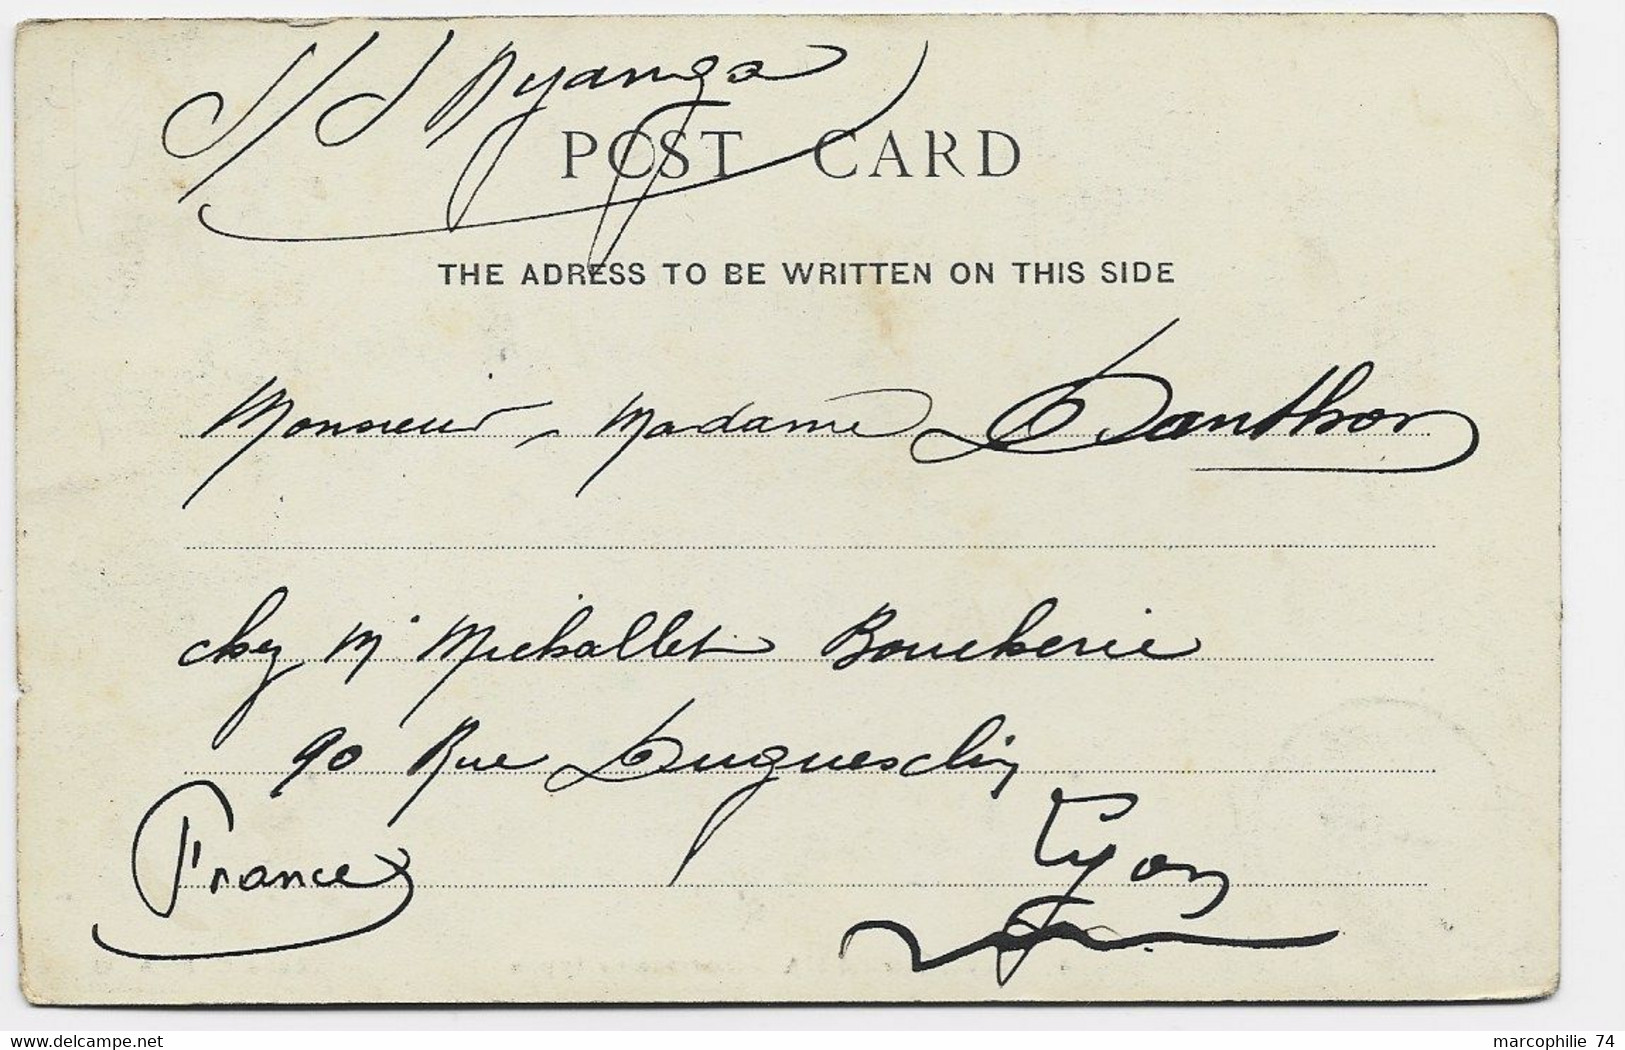 S/S Nyanza
POST CARD
THE ADRESS TO BE WRITTEN ON THIS SIDE
Monsieur, Madame Danthon
chez Mr Michallet Boucherie
90 Rue Duguesclin
Lyon
France
delcampe.net
marcophilie 74